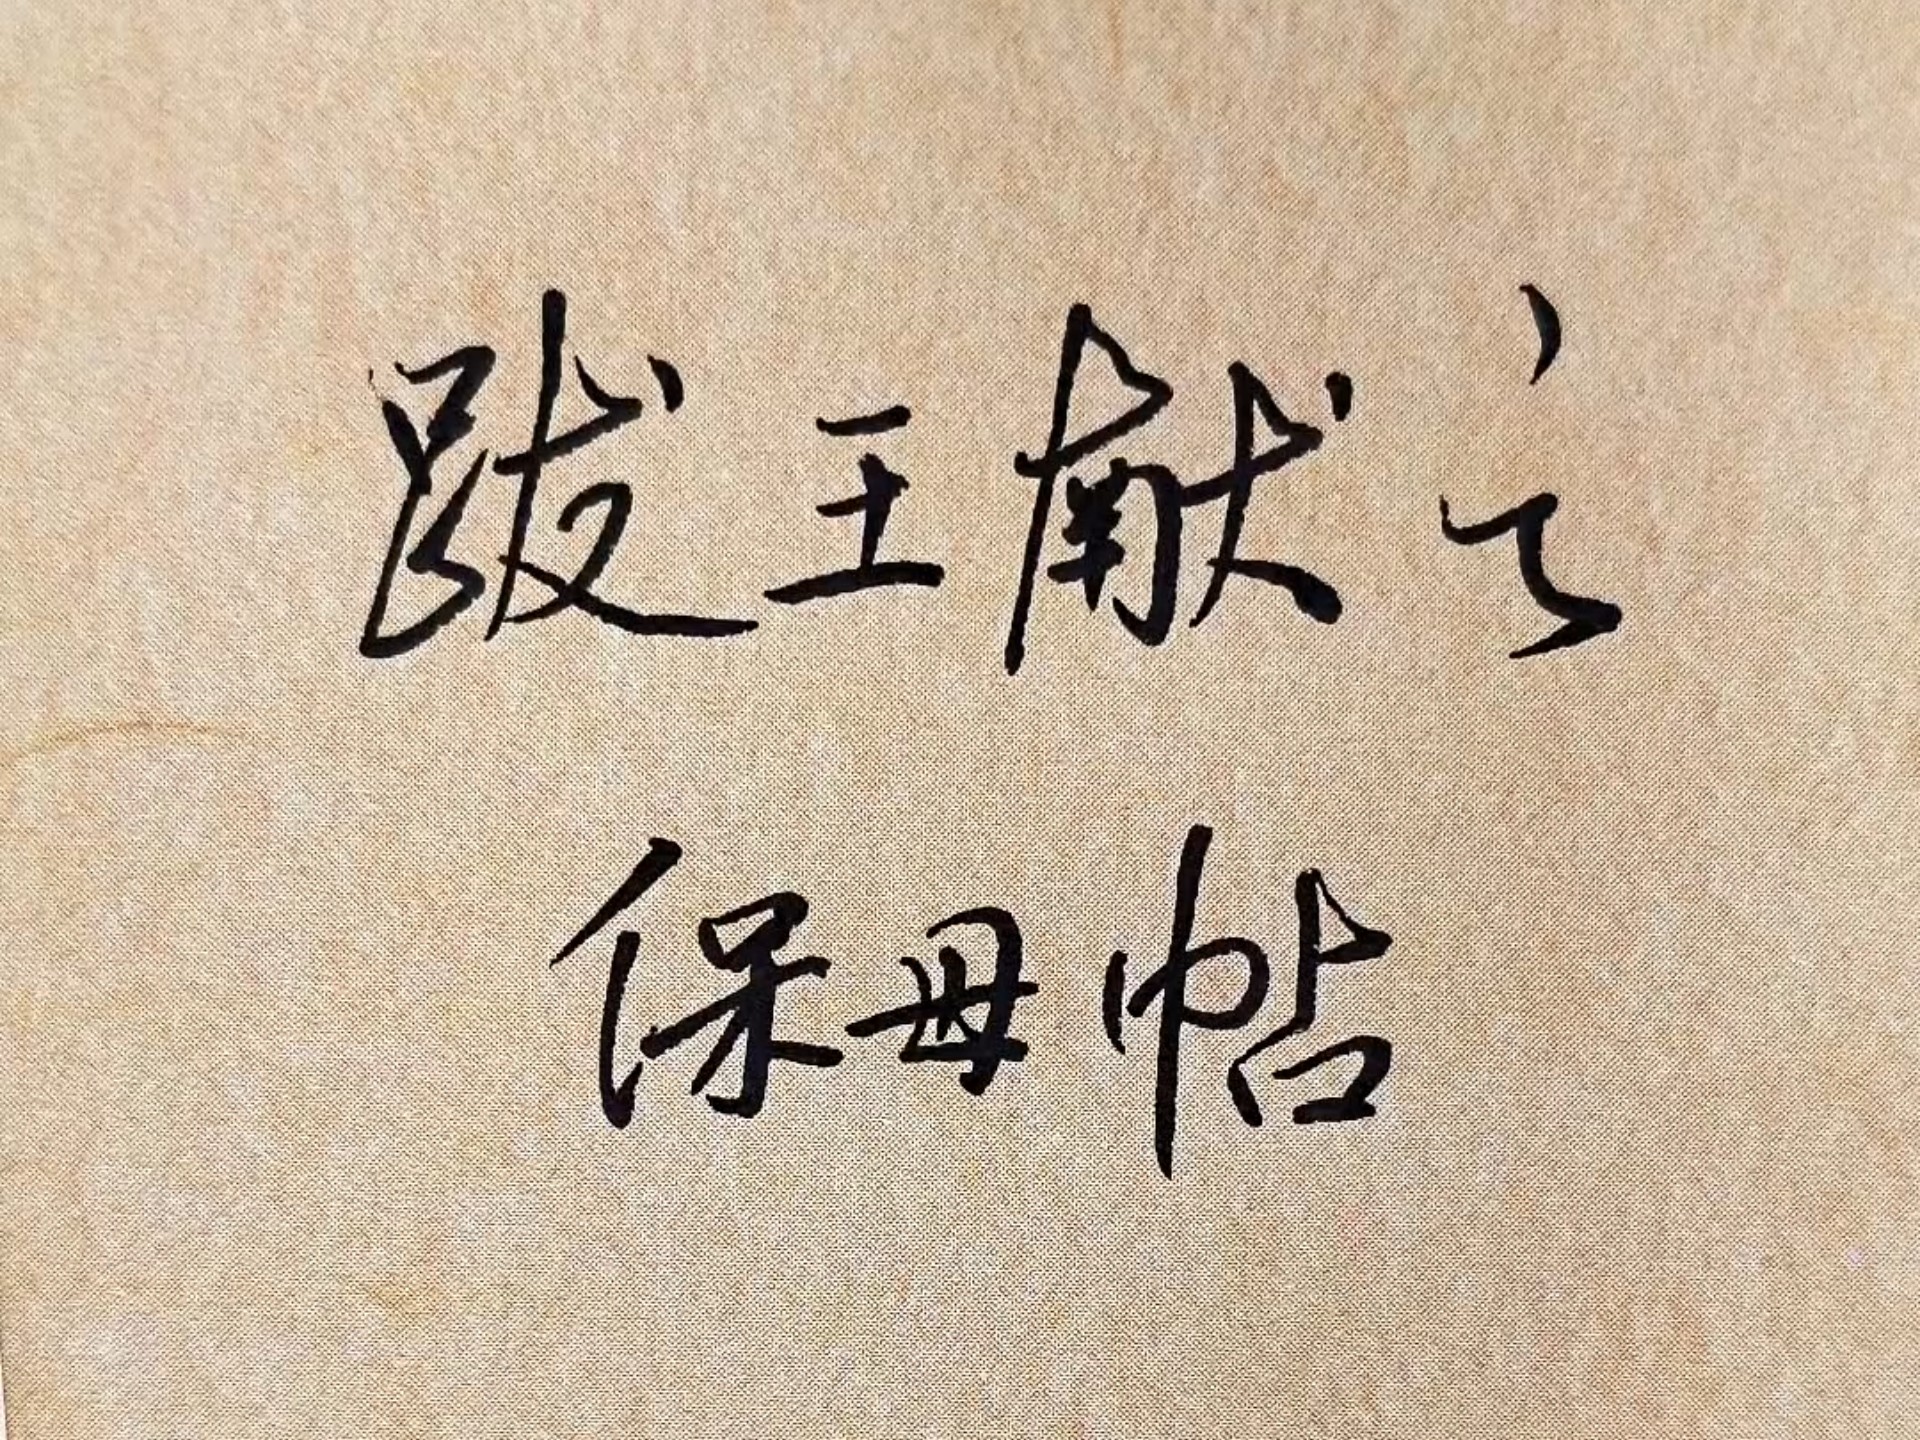 跋王献之
保母帖